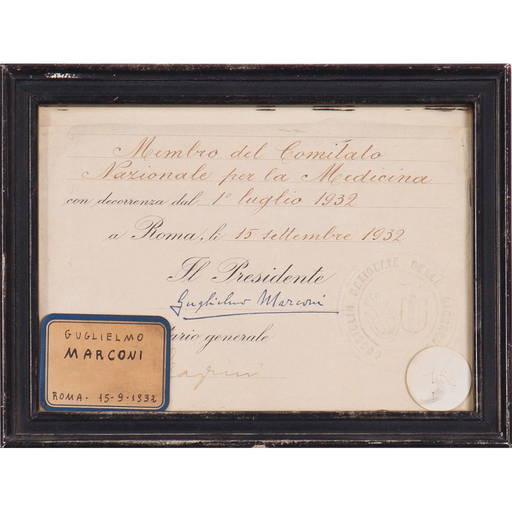 Membro del Comitato
Nazionale per la Medicina
con decorrenza dal 1° luglio 1932
a Roma, lì 15 settembre 1932
Il Presidente
Guglielmo Marconi
ario generale
GUGLIELMO
MARCONI
ROMA. 15-9-1932